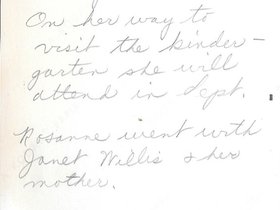 On her way to
visit the kinder-
garten she will
attend in Sept.
Rosanne went with
Janet Willis & her
mother.